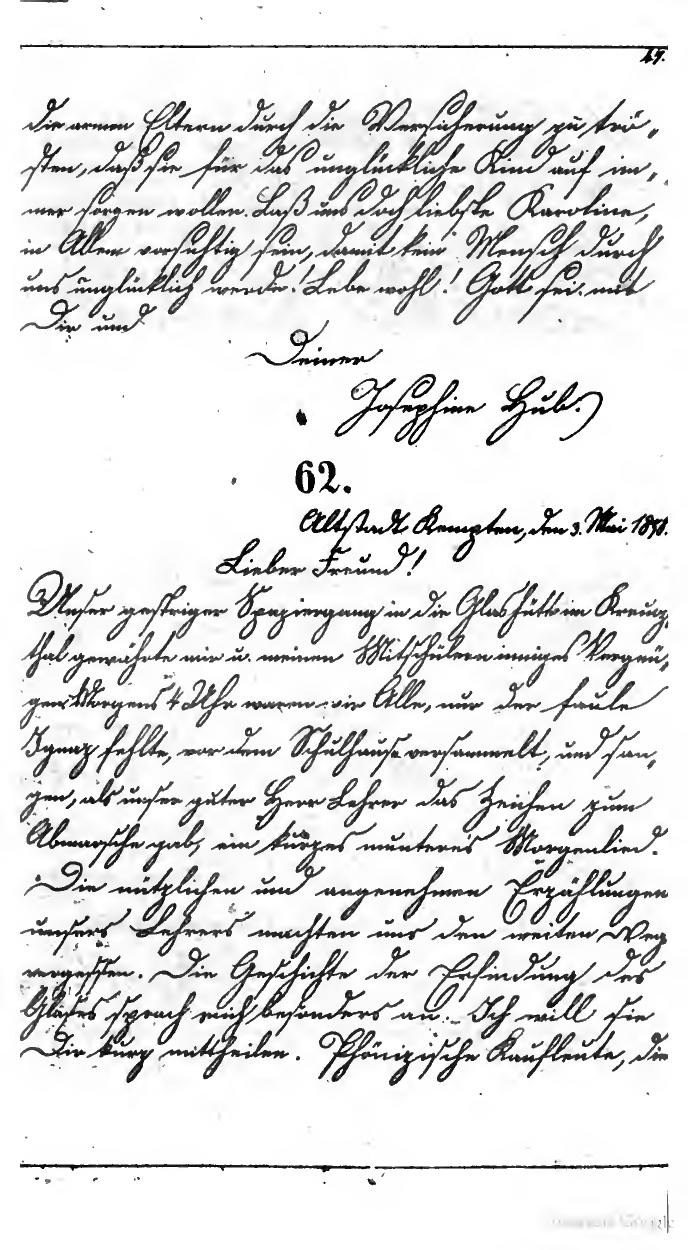 47.
die armen Eltern durch die Versicherung zu trö-
sten, daß sie für das unglückliche Kind auf im-
mer sorgen wollen. Laß uns doch liebste Karoline,
in Allem vorsichtig sein, damit kein Mensch durch
uns unglücklich werde! Lebe wohl! Gott sei mit
Dir und
Deiner
Josephine Hub.
62.
Altstadt Kempten, den 3. Mai
Lieber Freund!
Unser gestriger Spaziergang in die Glashütte im Kreuz-
thal gewährte mir u. meinen Mitschülern inniges Vergnü-
gen. Morgens 4 Uhr waren wir Alle, nur der faule
Ignaz fehlte, vor dem Schulhause versammelt, und san-
gen, als unser guter Herr Lehrer das Zeichen zum
Abmarsche gab, ein kurzes munteres Morgenlied.
Die nützlichen und angenehmen Erzählungen
unsers Lehrers machten uns den weiten Weg
vergessen. Die Geschichte der Erfindung des
Glases sprach mich besonders an. Ich will sie
Dir kurz mittheilen. Phönizische Kaufleute, die